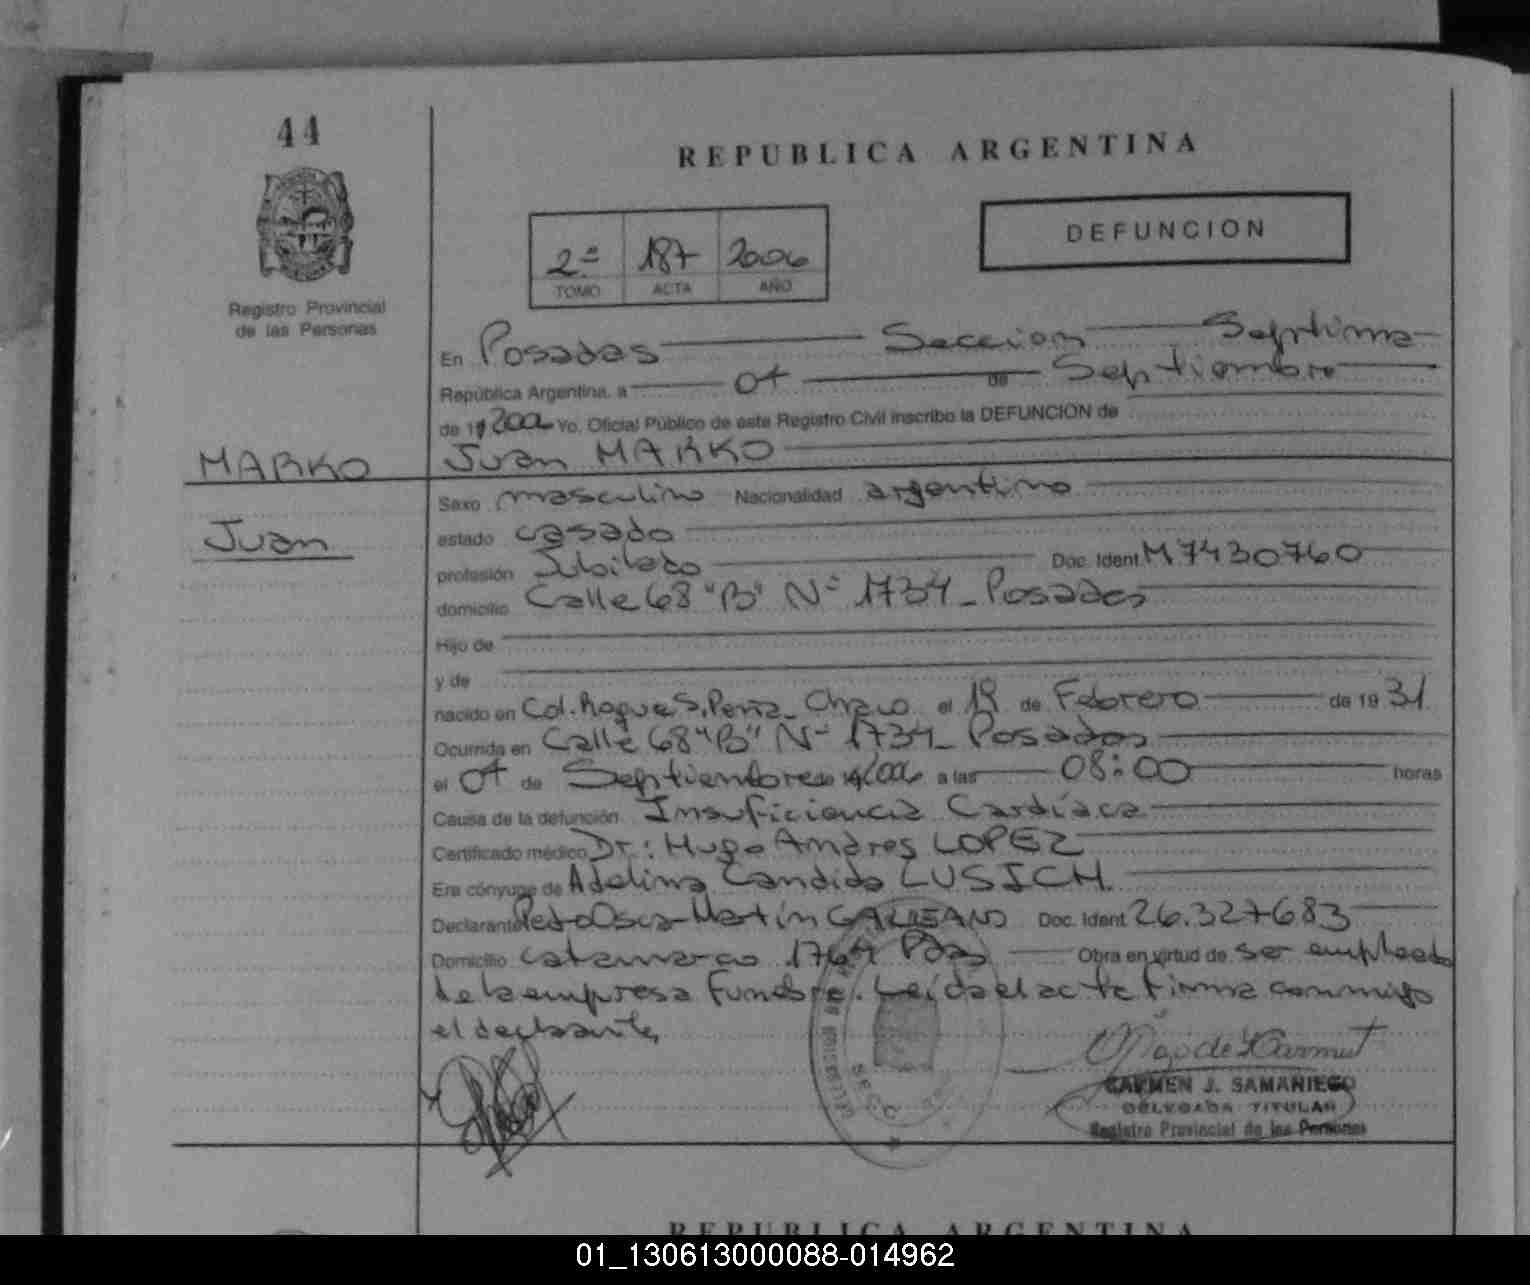 44
REPUBLICA ARGENTINA
DEFUNCION
2ª 187 2006
TOMO ACTA AÑO
Registro Provincial
de las Personas
En Posadas Seccion Septima
República Argentina, a 07 de Septiembre
de 19 2006 Yo, Oficial Público de este Registro Civil inscribo la DEFUNCION de
MARKO
Juan MARKO
Juan
Sexo masculino Nacionalidad argentino
estado casado
profesión Jubilado Doc. Ident. M7430760
domicilio Calle 68 "B" Nº 1734 - Posadas
Hijo de
y de
nacido en Col. Roque S. Peña - Chaco el 19 de Febrero de 19 31
Ocurrida en Calle 68 "B" Nº 1734 - Posadas
el 07 de Septiembre de 19 2006 a las 08:00 horas
Causa de la defunción Insuficiencia Cardíaca
Certificado médico Dr.: Hugo Andres LOPEZ
Era cónyuge de Adelina Candida LUSICH
Declarante Pedro Oscar Martín GALEANO Doc. Ident. 26.327683
Domicilio Catamarca 1764 Pdas Obra en virtud de ser empleado
de la empresa Funebre. Leída el acta firma conmigo
el declarante,
CARMEN J. SAMANIEGO
DELEGADA TITULAR
Registro Provincial de las Personas
REPUBLICA ARGENTINA
01_130613000088-014962